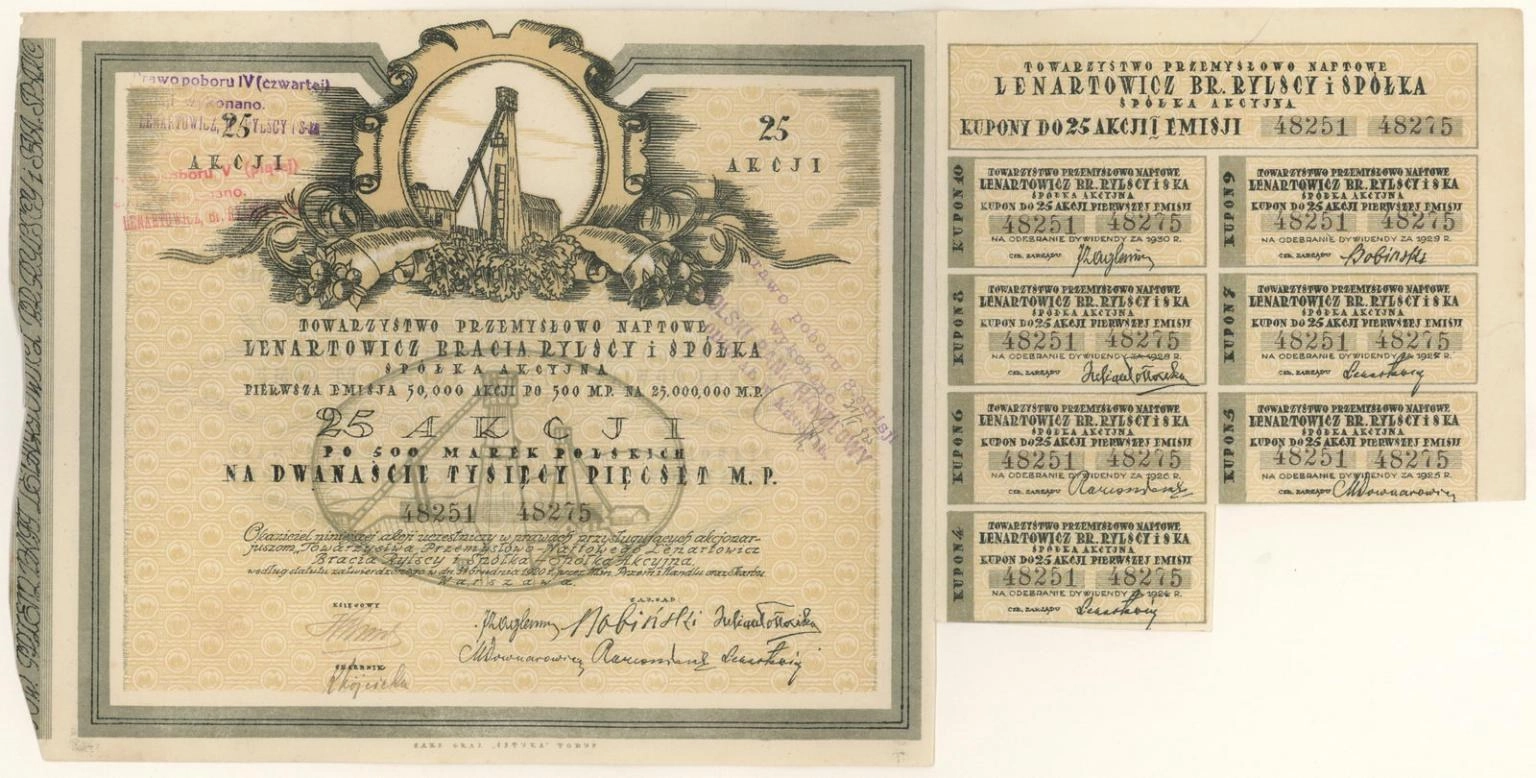 Prawo poboru IV (czwartej)
wykonano.
LENARTOWICZ, RYLSCY i S-ka
25
AKCJI
poboru V (piątej)
LENARTOWICZ, Br.
25
AKCJI
TOWARZYSTWO PRZEMYSŁOWO NAFTOWE
LENARTOWICZ BRACIA RYLSCY i SPÓŁKA
SPÓŁKA AKCYJNA
PIERWSZA EMISJA 50,000 AKCJI PO 500 M.P. NA 25.000,000 M.P.
25 AKCJI
PO 500 MAREK POLSKICH
NA DWANAŚCIE TYSIĘCY PIĘCSET M. P.
48251 48275
Okaziciel niniejszej akcji uczestniczy w prawach przysługujących akcjonar-
juszom, Towarzystwa Przemysłowo-Naftowego Lenartowicz
Bracia Rylscy i Spółka - Spółka Akcyjna,
według statutu zatwierdzonego w dn. 31 Grudnia 1920 r. przez Min. Przem. i Handlu oraz Skarbu
Warszawa.
Prawo poboru emisji
wykonano
POLSKI BANK HANDLOWY
KSIĘGOWY
ZARZĄD
Bobiński
MDownarowicz
SKARBNIK
ZAKŁ. GRAF. „SZTUKA" TORUŃ
TOWARZYSTWO PRZEMYSŁOWO NAFTOWE
LENARTOWICZ BR. RYLSCY i SPÓŁKA
SPÓŁKA AKCYJNA
KUPONY DO 25 AKCJI I EMISJI 48251 48275
KUPON 10
TOWARZYSTWO PRZEMYSŁOWO NAFTOWE
LENARTOWICZ BR. RYLSCY i SKA
SPÓŁKA AKCYJNA
KUPON DO 25 AKCJI PIERWSZEJ EMISJI
48251 48275
NA ODEBRANIE DYWIDENDY ZA 1930 R.
CZŁ. ZARZĄDU
KUPON 9
TOWARZYSTWO PRZEMYSŁOWO NAFTOWE
LENARTOWICZ BR. RYLSCY i SKA
SPÓŁKA AKCYJNA
KUPON DO 25 AKCJI PIERWSZEJ EMISJI
48251 48275
NA ODEBRANIE DYWIDENDY ZA 1929 R.
CZŁ. ZARZĄDU Bobiński
KUPON 8
TOWARZYSTWO PRZEMYSŁOWO NAFTOWE
LENARTOWICZ BR. RYLSCY i SKA
SPÓŁKA AKCYJNA
KUPON DO 25 AKCJI PIERWSZEJ EMISJI
48251 48275
NA ODEBRANIE DYWIDENDY ZA 1928 R.
CZŁ. ZARZĄDU
KUPON 7
TOWARZYSTWO PRZEMYSŁOWO NAFTOWE
LENARTOWICZ BR. RYLSCY i SKA
SPÓŁKA AKCYJNA
KUPON DO 25 AKCJI PIERWSZEJ EMISJI
48251 48275
NA ODEBRANIE DYWIDENDY ZA R.
CZŁ. ZARZĄDU
KUPON 6
TOWARZYSTWO PRZEMYSŁOWO NAFTOWE
LENARTOWICZ BR. RYLSCY i SKA
SPÓŁKA AKCYJNA
KUPON DO 25 AKCJI PIERWSZEJ EMISJI
48251 48275
NA ODEBRANIE DYWIDENDY ZA R.
CZŁ. ZARZĄDU
KUPON 5
TOWARZYSTWO PRZEMYSŁOWO NAFTOWE
LENARTOWICZ BR. RYLSCY i SKA
SPÓŁKA AKCYJNA
KUPON DO 25 AKCJI PIERWSZEJ EMISJI
48251 48275
NA ODEBRANIE DYWIDENDY ZA 1925 R.
CZŁ. ZARZĄDU MDownarowicz
KUPON 4
TOWARZYSTWO PRZEMYSŁOWO NAFTOWE
LENARTOWICZ BR. RYLSCY i SKA
SPÓŁKA AKCYJNA
KUPON DO 25 AKCJI PIERWSZEJ EMISJI
48251 48275
NA ODEBRANIE DYWIDENDY ZA 1924 R.
CZŁ. ZARZĄDU